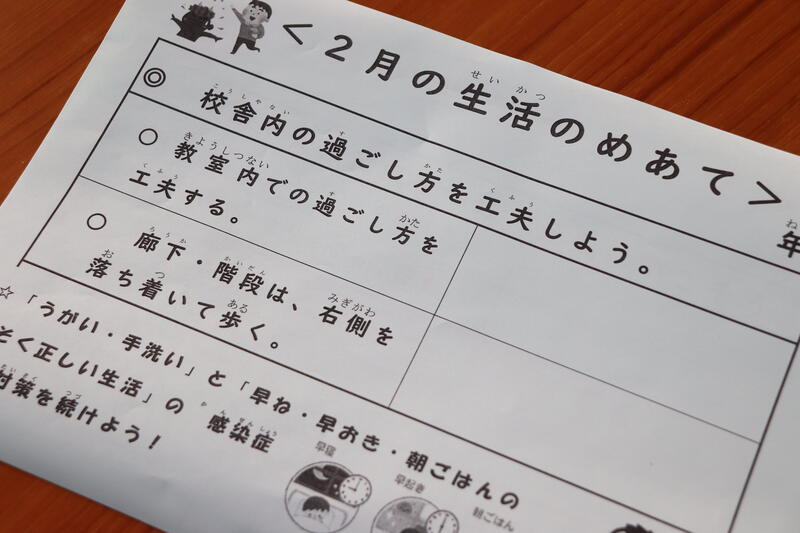 <2月の生活のめあて>
年
◎ 校舎内の過ごし方を工夫しよう。
○ 教室内での過ごし方を
工夫する。
○ 廊下・階段は、右側を
落ち着いて歩く。
☆「うがい・手洗い」と「早ね・早おき・朝ごはんの
そく正しい生活」の 感染症
対策を続けよう!
早寝
早起き
朝ごはん